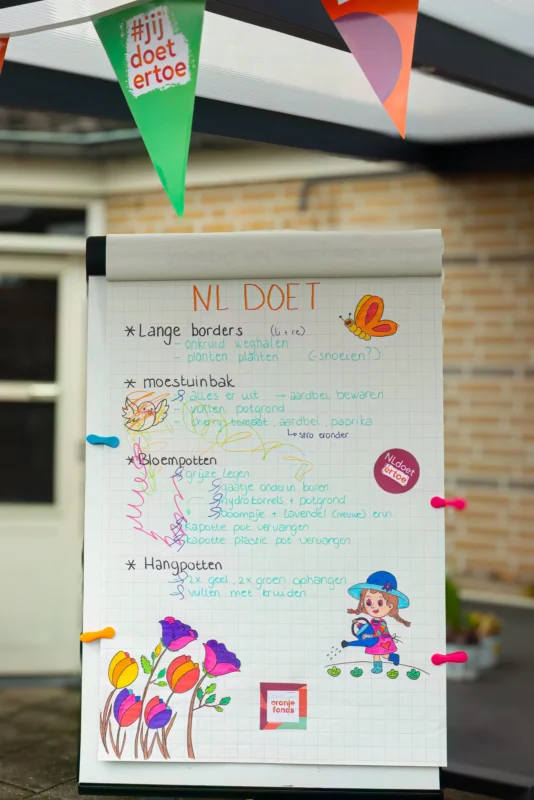 #jij
doet
ertoe
NL DOET
* Lange borders (li + re)
- onkruid weghalen
- planten planten (-snoeien?)
* moestuinbak
- alles er uit → aardbei bewaren
- vullen potgrond
- cherry tomaat, aardbei, paprika
↳ stro eronder
* Bloempotten
- grijze legen
- gaatje onderin boren
- hydrokorrels + potgrond
- boompje + lavendel (nieuwe) erin
- kapotte pot vervangen
- kapotte plastic pot vervangen
* Hangpotten
- 2x geel, 2x groen ophangen
- vullen met kruiden
NLdoet
ertoe
oranje
fonds